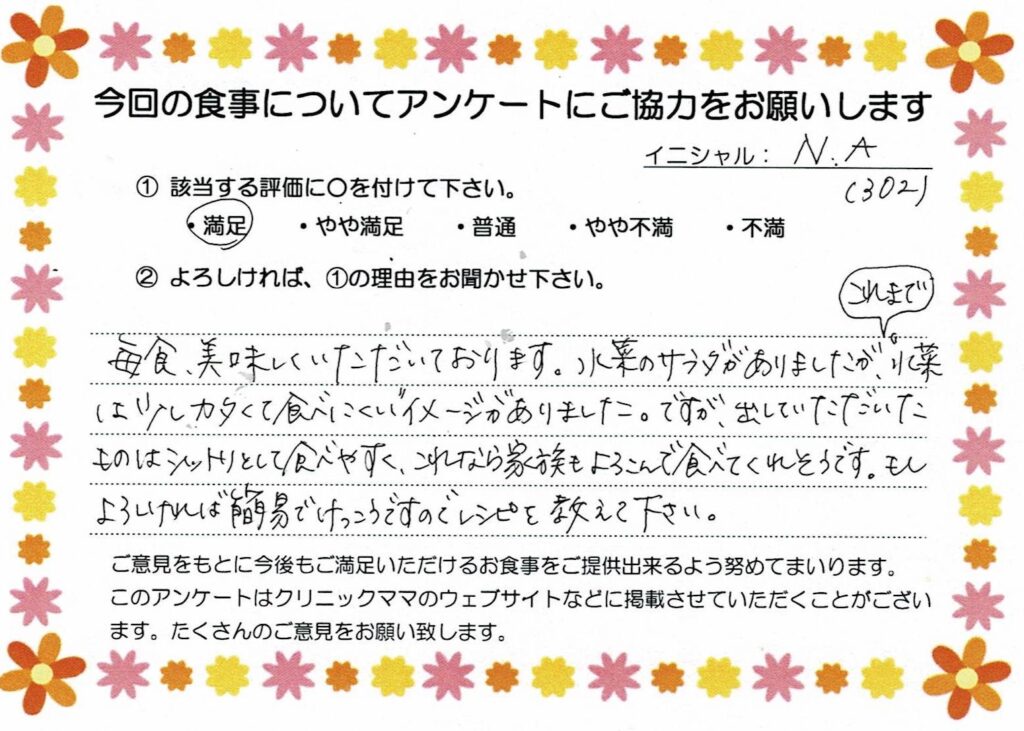 今回の食事についてアンケートにご協力をお願いします
イニシャル： N.A
(302)
① 該当する評価に〇を付けて下さい。
・満足 ・やや満足 ・普通 ・やや不満 ・不満
② よろしければ、①の理由をお聞かせ下さい。
これまで
毎食、美味しくいただいております。水菜のサラダがありましたが、水菜
は少しカタくて食べにくいイメージがありました。ですが、出していただいた
ものはシットリとして食べやすく、これなら家族もよろこんで食べてくれそうです。もし
よろしければ簡易でけっこうですのでレシピを教えて下さい。
ご意見をもとに今後もご満足いただけるお食事をご提供出来るよう努めてまいります。
このアンケートはクリニックママのウェブサイトなどに掲載させていただくことがござい
ます。たくさんのご意見をお願い致します。